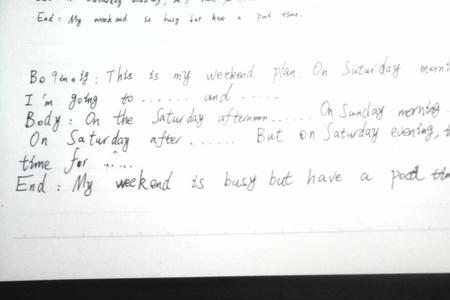 End : My weekend is busy but have a pood time.
Beginig : This is my weekend plan. On Saturday morni
I'm going to ....... and .......
Body : On the Saturday afternoon...... On Sunday morning
On Saturday after ....... But on Saturday evening,
time for .....
End : My weekend is busy but have a pood tim